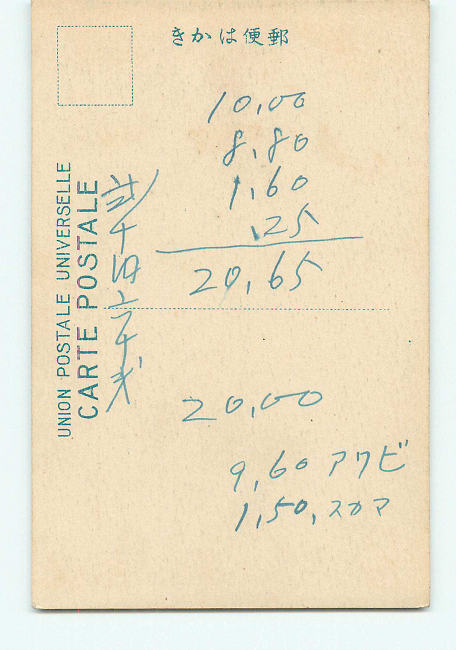 郵便はかき
10,00
8,80
1,60
,25
20,65
20,00
9,60 アワビ
1,50, スカマ
UNION POSTALE UNIVERSELLE
CARTE POSTALE